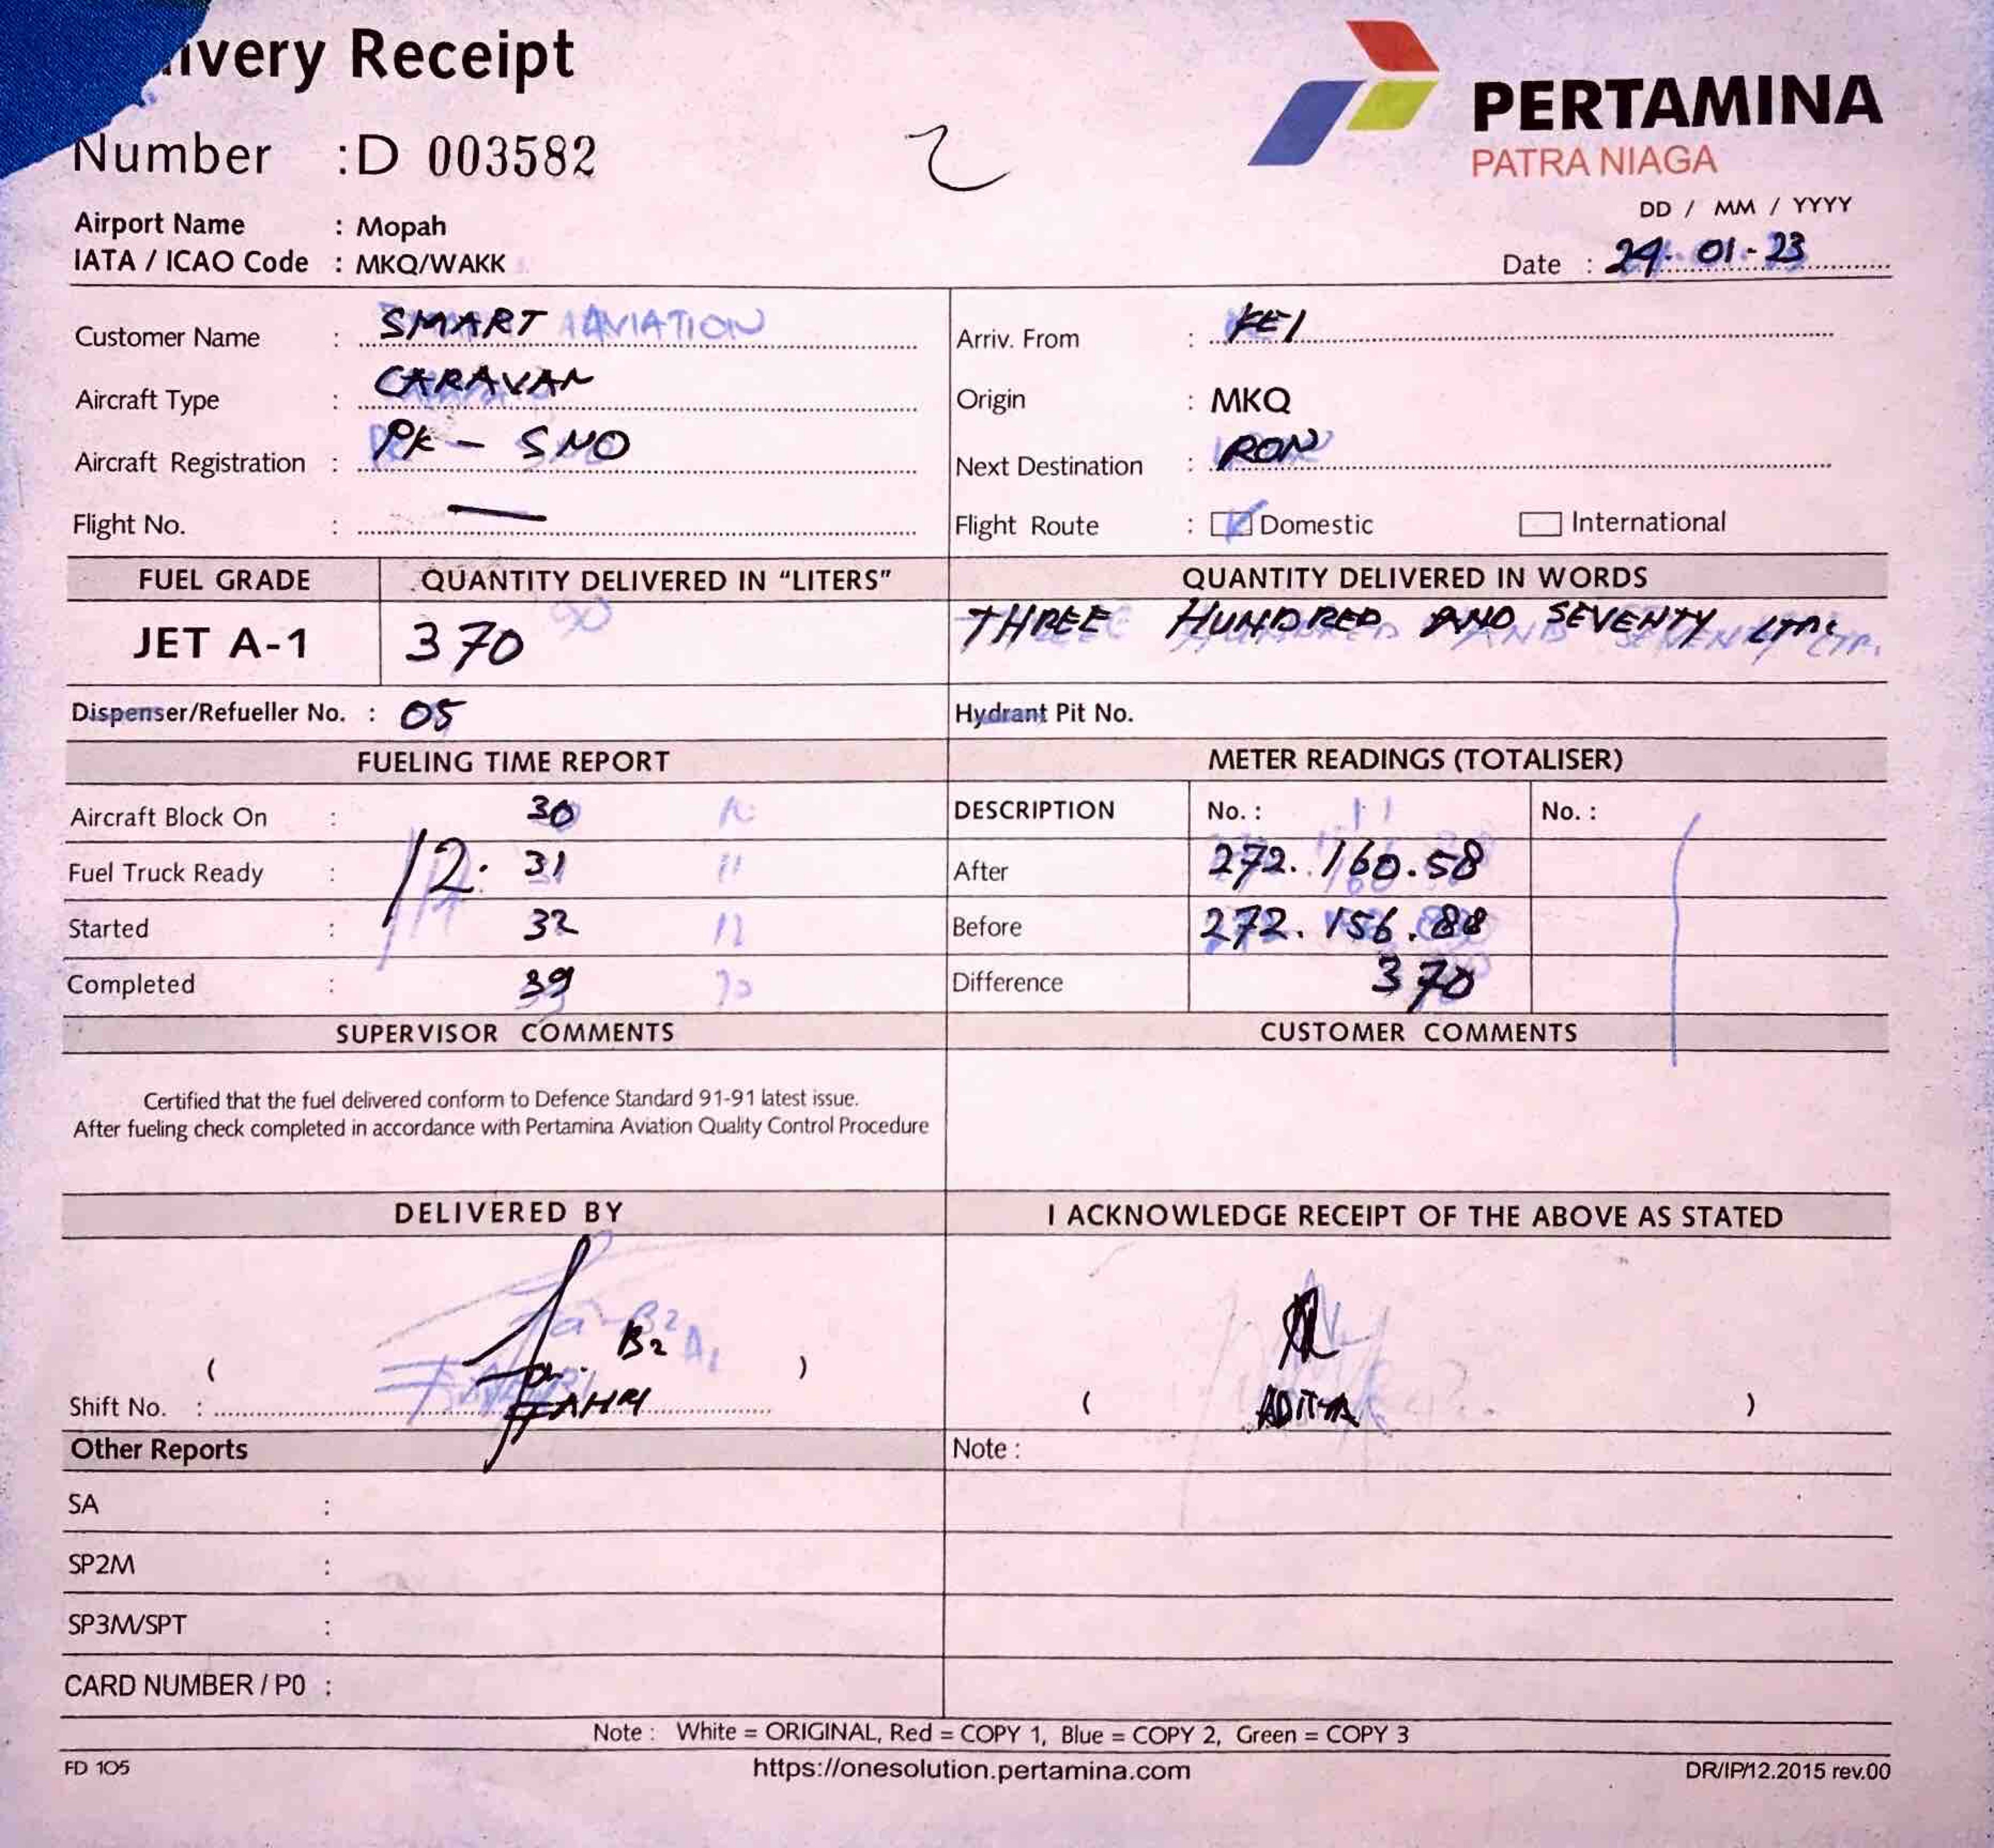 ivery Receipt
PERTAMINA
PATRA NIAGA
Number : D 003582
2
DD / MM / YYYY
Airport Name : Mopah
IATA / ICAO Code : MKQ/WAKK
Date : 29. 01 - 23
Customer Name : SMART AVIATION
Arriv. From : KEI
Aircraft Type : CARAVAN
Origin : MKQ
Aircraft Registration : PK - SNO
Next Destination : RON
Flight No. : —
Flight Route : Domestic International
FUEL GRADE QUANTITY DELIVERED IN “LITERS” QUANTITY DELIVERED IN WORDS
JET A-1 370 THREE HUNDRED AND SEVENTY LTR.
Dispenser/Refueller No. : 05 Hydrant Pit No.
FUELING TIME REPORT METER READINGS (TOTALISER)
Aircraft Block On : 30 DESCRIPTION No. : No. :
Fuel Truck Ready : 12. 31 After 272.160.58
Started : 32 Before 272.156.88
Completed : 39 Difference 370
SUPERVISOR COMMENTS CUSTOMER COMMENTS
Certified that the fuel delivered conform to Defence Standard 91-91 latest issue.
After fueling check completed in accordance with Pertamina Aviation Quality Control Procedure
DELIVERED BY I ACKNOWLEDGE RECEIPT OF THE ABOVE AS STATED
B2
( )
Shift No. : FAHRI
( ADITYA )
Other Reports Note :
SA :
SP2M :
SP3M/SPT :
CARD NUMBER / P0 :
Note : White = ORIGINAL, Red = COPY 1, Blue = COPY 2, Green = COPY 3
FD 105 https://onesolution.pertamina.com DR/IP/12.2015 rev.00